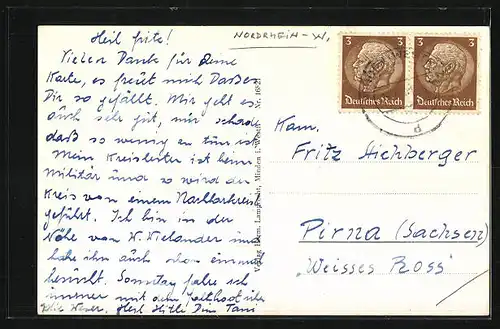 Heil Fritz!
Vielen Dank für deine
Karte, es freut mich daß es
Dir so gefällt. Mir geht es
auch sehr gut, nur schade
daß so wenig zu tun ist.
Mein Kreisleiter ist beim
Militär und so wird der
Kreis von einem Nachbarkreis
geführt. Ich bin in der
Nähe von W. Wielander und
habe ihn auch schon einmal
besucht. Sonntag fahre ich
immer mit dem
die Weser. Heil Hitler Dein
NORDRHEIN-W.
3 3
Deutsches Reich Deutsches Reich
Kam.
Fritz Hichberger
Pirna (Sachsen)
"Weisses Ross"
Verlag Herm. Minden i. Westf. Nr.